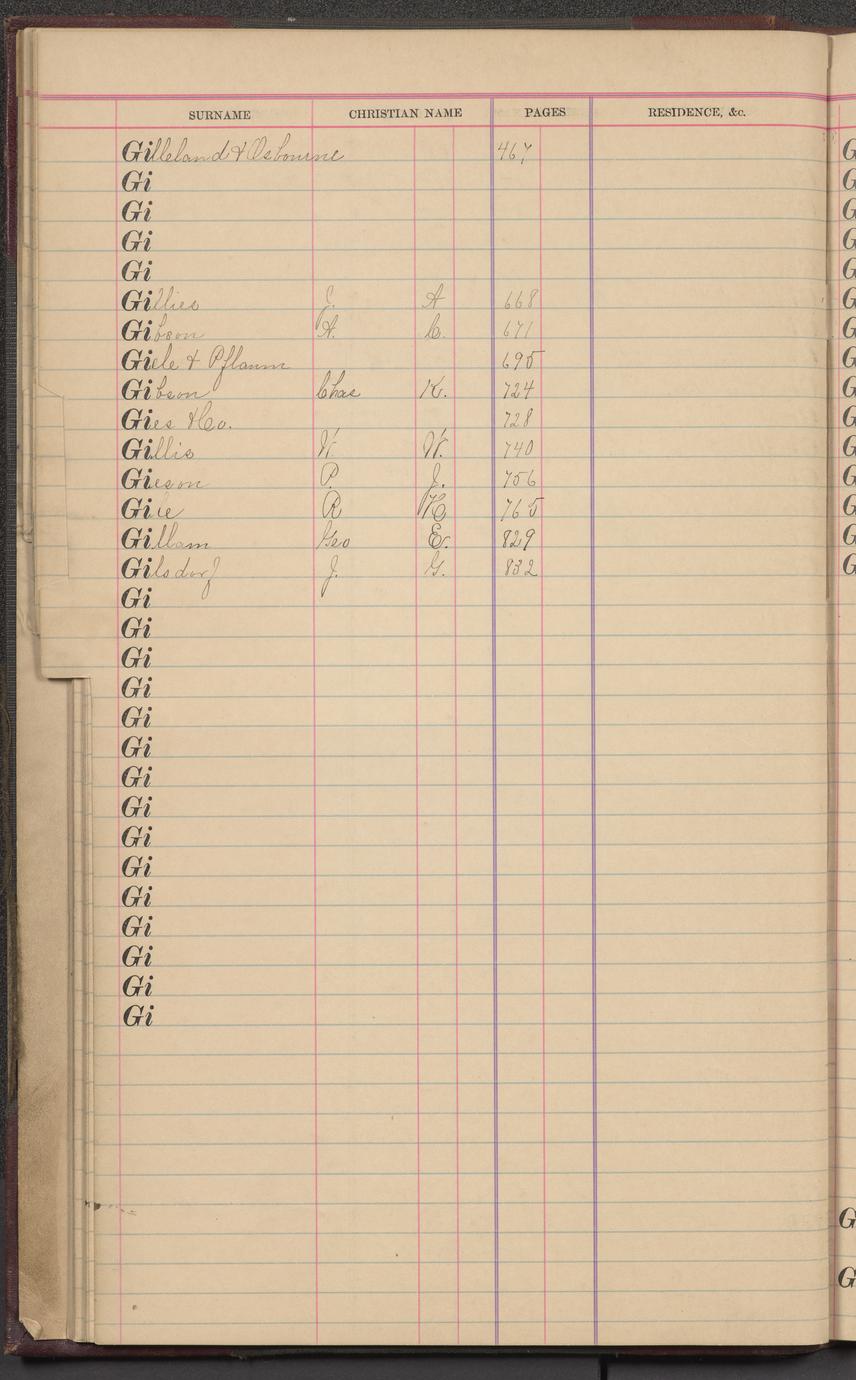 SURNAME CHRISTIAN NAME PAGES RESIDENCE, &c.
Gilleland & Osbourne 467
Gi
Gi
Gi
Gi
Gillies J. A 668
Gibson A. C. 671
Giele & Pflaum 695
Gibson Chas K. 724
Gies & Co. 728
Gillis W. W. 740
Gieson P. J. 756
Gice R H 765
Gillam Geo E. 829
Gilsdorf J. G. 832
Gi
Gi
Gi
Gi
Gi
Gi
Gi
Gi
Gi
Gi
Gi
Gi
Gi
Gi
Gi